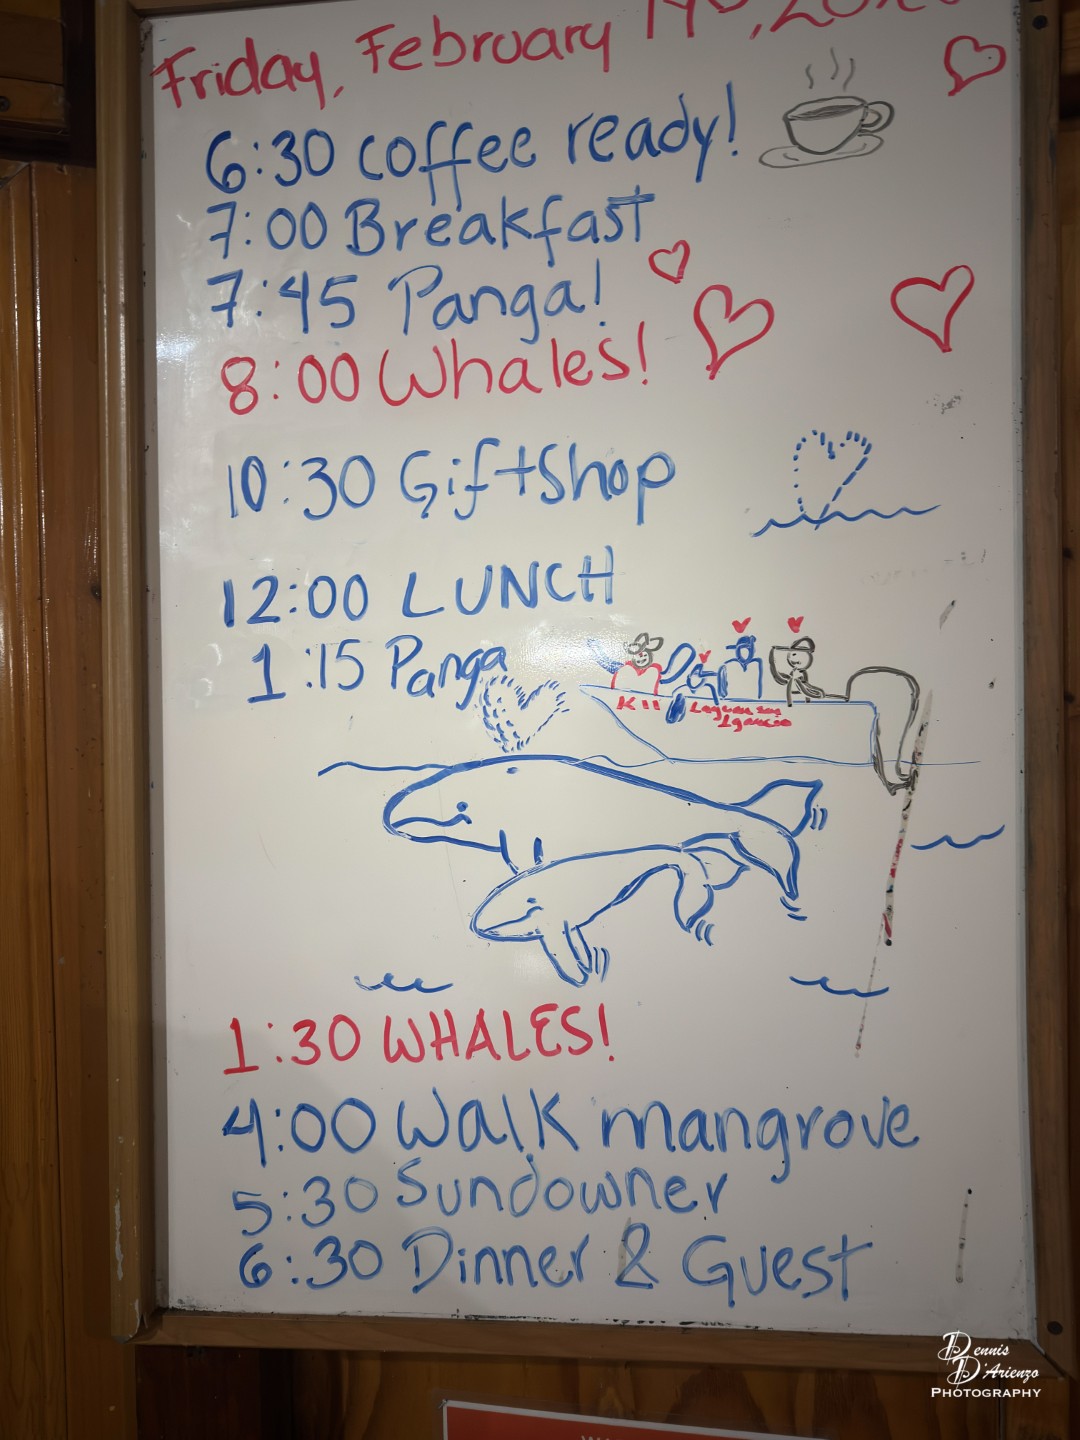 Friday, February 14
6:30 coffee ready!
7:00 Breakfast
7:45 Panga!
8:00 Whales!
10:30 GiftShop
12:00 LUNCH
1:15 Panga
K11
Laguna San
Ignacio
1:30 WHALES!
4:00 Walk mangrove
5:30 Sundowner
6:30 Dinner & Guest
Dennis
D'Arienzo
PHOTOGRAPHY